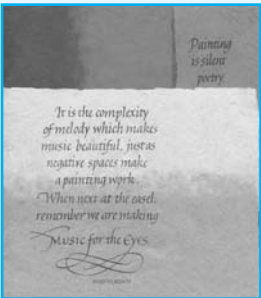 Painting
is silent
poetry.
It is the complexity
of melody which makes
music beautiful, just as
negative spaces make
a painting work.
When next at the easel,
remember we are making
Music for the Eyes